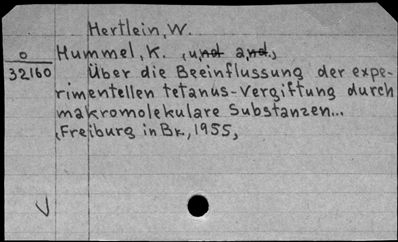 Hertlein, W.
o Hummel, K. , und and.,
32160 Über die Beeinflussung der expe-
rimentellen tetanus-Vergiftung durch
makromolekulare Substanzen...
, Freiburg in Br., 1955,
V